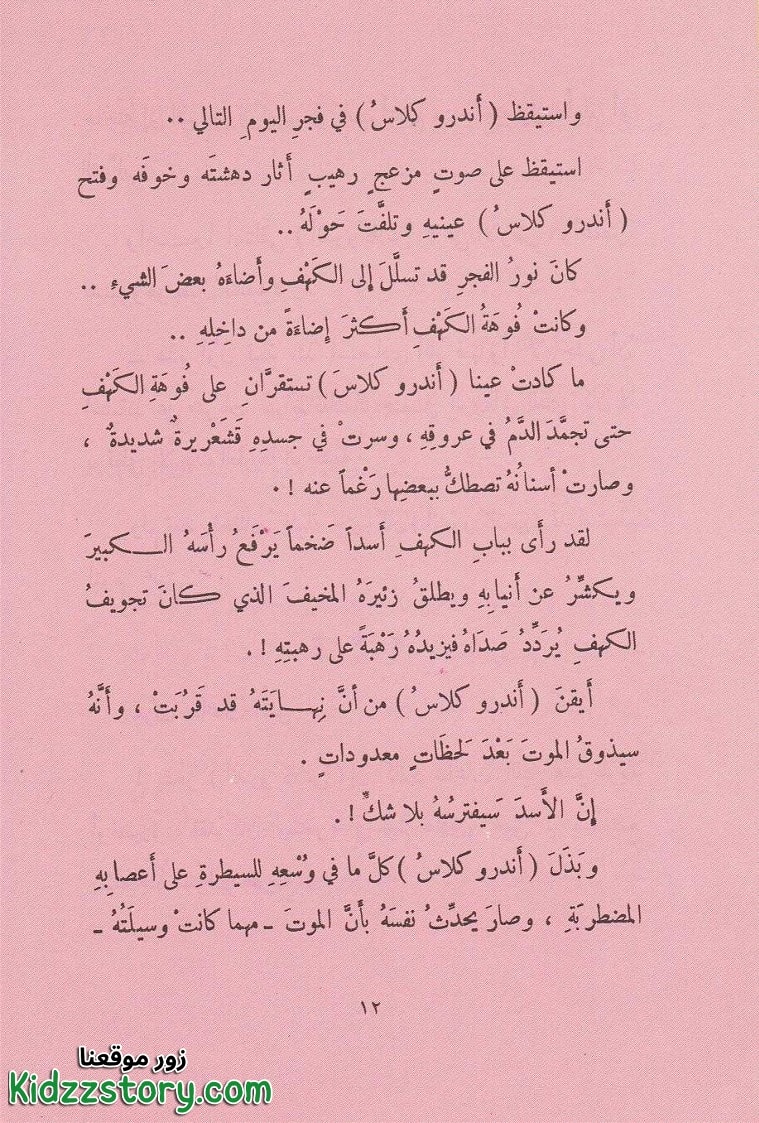 واستيقظ ( أَندرو كلاسُ ) في فجرِ اليومِ التالي ..
استيقظ على صوتٍ مزعجٍ رهيبٍ أثار دهشتَه وخوفَه وفتح
( أَندرو كلاسُ ) عينيهِ وتلفَّتَ حَوْلَهُ ..
كانَ نورُ الفجرِ قد تسلَّلَ إلى الكَهْفِ وأَضاءَهُ بعضَ الشيءِ ..
وكانتْ فُوهَةُ الكَهْفِ أَكثرَ إضاءَةً من داخِلِهِ ..
ما كادتْ عينا ( أَندرو كلاسَ ) تستقرَّانِ على فُوهَةِ الكَهْفِ
حتى تجمَّدَ الدَّمُ في عروقِهِ ، وسرتْ في جسدِهِ قَشَعْريرةٌ شديدةٌ ،
وصارتْ أسنانُهُ تصطكُّ ببعضِها رَغْماً عنه ! .
لقد رأَى ببابِ الكهفِ أَسداً ضَخماً يَرْفَعُ رأْسَهُ الكبيرَ
ويكشِّرُ عن أَنيابِهِ ويطلقُ زئيرَهُ المخيفَ الذي كانَ تجويفُ
الكهفِ يُرَدِّدُ صَدَاهُ فيزيدُهُ رَهْبَةً على رهبتِهِ ! .
أَيقنَ ( أَندرو كلاسُ ) من أنَّ نِهايَتَهُ قد قَرُبَتْ ، وأَنَّهُ
سيذوقُ الموتَ بَعْدَ لَحظَاتٍ معدوداتٍ .
إنَّ الأَسدَ سَيفترسُهُ بلا شكٍّ ! .
وبَذَلَ ( أَندرو كلاسُ ) كلَّ ما في وُسْعِهِ للسيطرةِ على أَعصابِهِ
المضطربَةِ ، وصارَ يحدِّثُ نفسَهُ بأَنَّ الموتَ ـ مهما كانتْ وسيلَتُهُ ـ
١٢
زور موقعنا
Kidzzstory.com